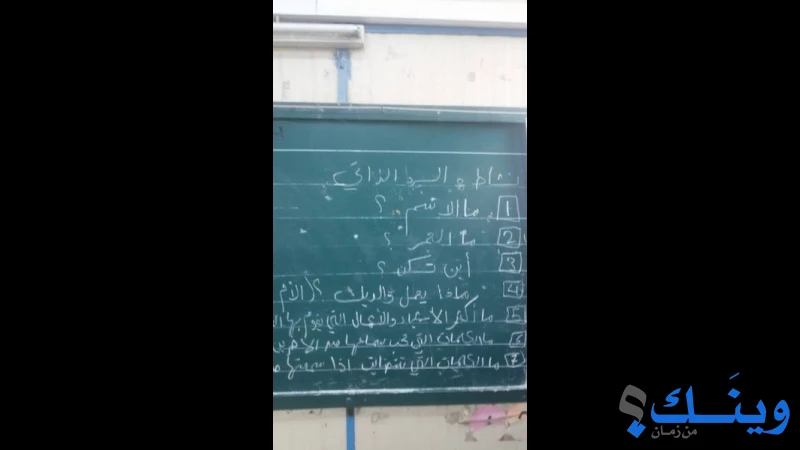 نشاط: السرد الذاتي
1 ما الاسم؟
2 ما العمر؟
3 أين تسكن؟
4 ماذا يعمل والديك؟ (الأم
5 ما أكثر الأشياء والأعمال التي يقوم بها
6 ما الكلمات التي تحب سماعها من الآخرين
7 ما الكلمات التي تضايقك إذا سمعتها
وينَـك؟
من زمان